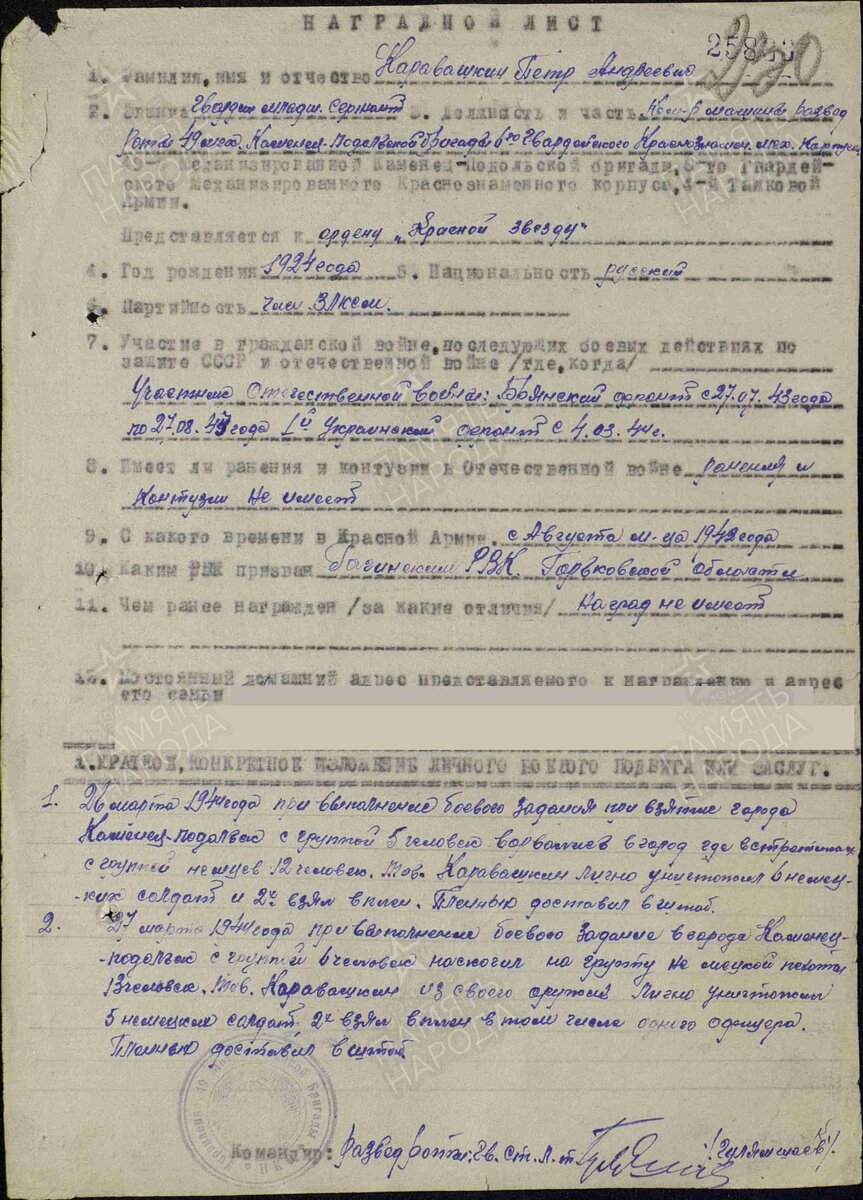 НАГРАДНОЙ ЛИСТ
1. Фамилия, имя и отчество Каравашкин Пётр Андреевич
2. Звание Гвардии младш. Сержант 3. Должность и часть Ком-р машины развед
роты 49 мех. Каменец-Подольской бригады 6го Гвардейского Краснознамен. мех. корпуса
49-й Механизированной Каменец-Подольской бригады, 6-го Гвардей-
ского Механизированного Краснознаменного корпуса, 4-й Танковой
Армии.
Представляется к ордену „Красной звезды"
4. Год рождения 1924 года 5. Национальность русский
6. Партийность член ВЛКСМ.
7. Участие в гражданской войне, последующих боевых действиях по
защите СССР и отечественной войне /где, когда/
Участник Отечественной войны: Брянский фронт с 27.07.43 года
по 27.08.43 года 1й Украинский фронт с 4.03.44 г.
8. Имеет ли ранения и контузии в Отечественной войне ранения и
контузии не имеет
9. С какого времени в Красной Армии с Августа м-ца 1942 года
10. Каким РВК призван РВК Горьковской области
11. Чем ранее награжден /за какие отличия/ Наград не имеет
Постоянный домашний адрес представляемого к награждению и адрес
его семьи
1. КРАТКОЕ, КОНКРЕТНОЕ ИЗЛОЖЕНИЕ ЛИЧНОГО БОЕВОГО ПОДВИГА ИЛИ ЗАСЛУГ.
1. 26 марта 1944 года при выполнение боевого задания при взятие города
Каменец-подольск с группой 5 человек ворвались в город где встретились
с группой немцев 12 человек. Тов. Каравашкин лично уничтожил 6 немец-
-ких солдат и 2х взял в плен. Пленных доставил в штаб.
2. 27 марта 1944 года при выполнении боевого задание в города Каменец-
-подольск с группой 6 человек наскочил на группу не мецкой пехоты
13 человек. Тов. Каравашкин из своего оружия лично уничтожил
5 немецких солдат 2х взял в плен в том числе одного офицера.
Пленных доставил в штаб
Командир: развед роты: Гв. Ст. л-т
ПАМЯТЬ
НАРОДА